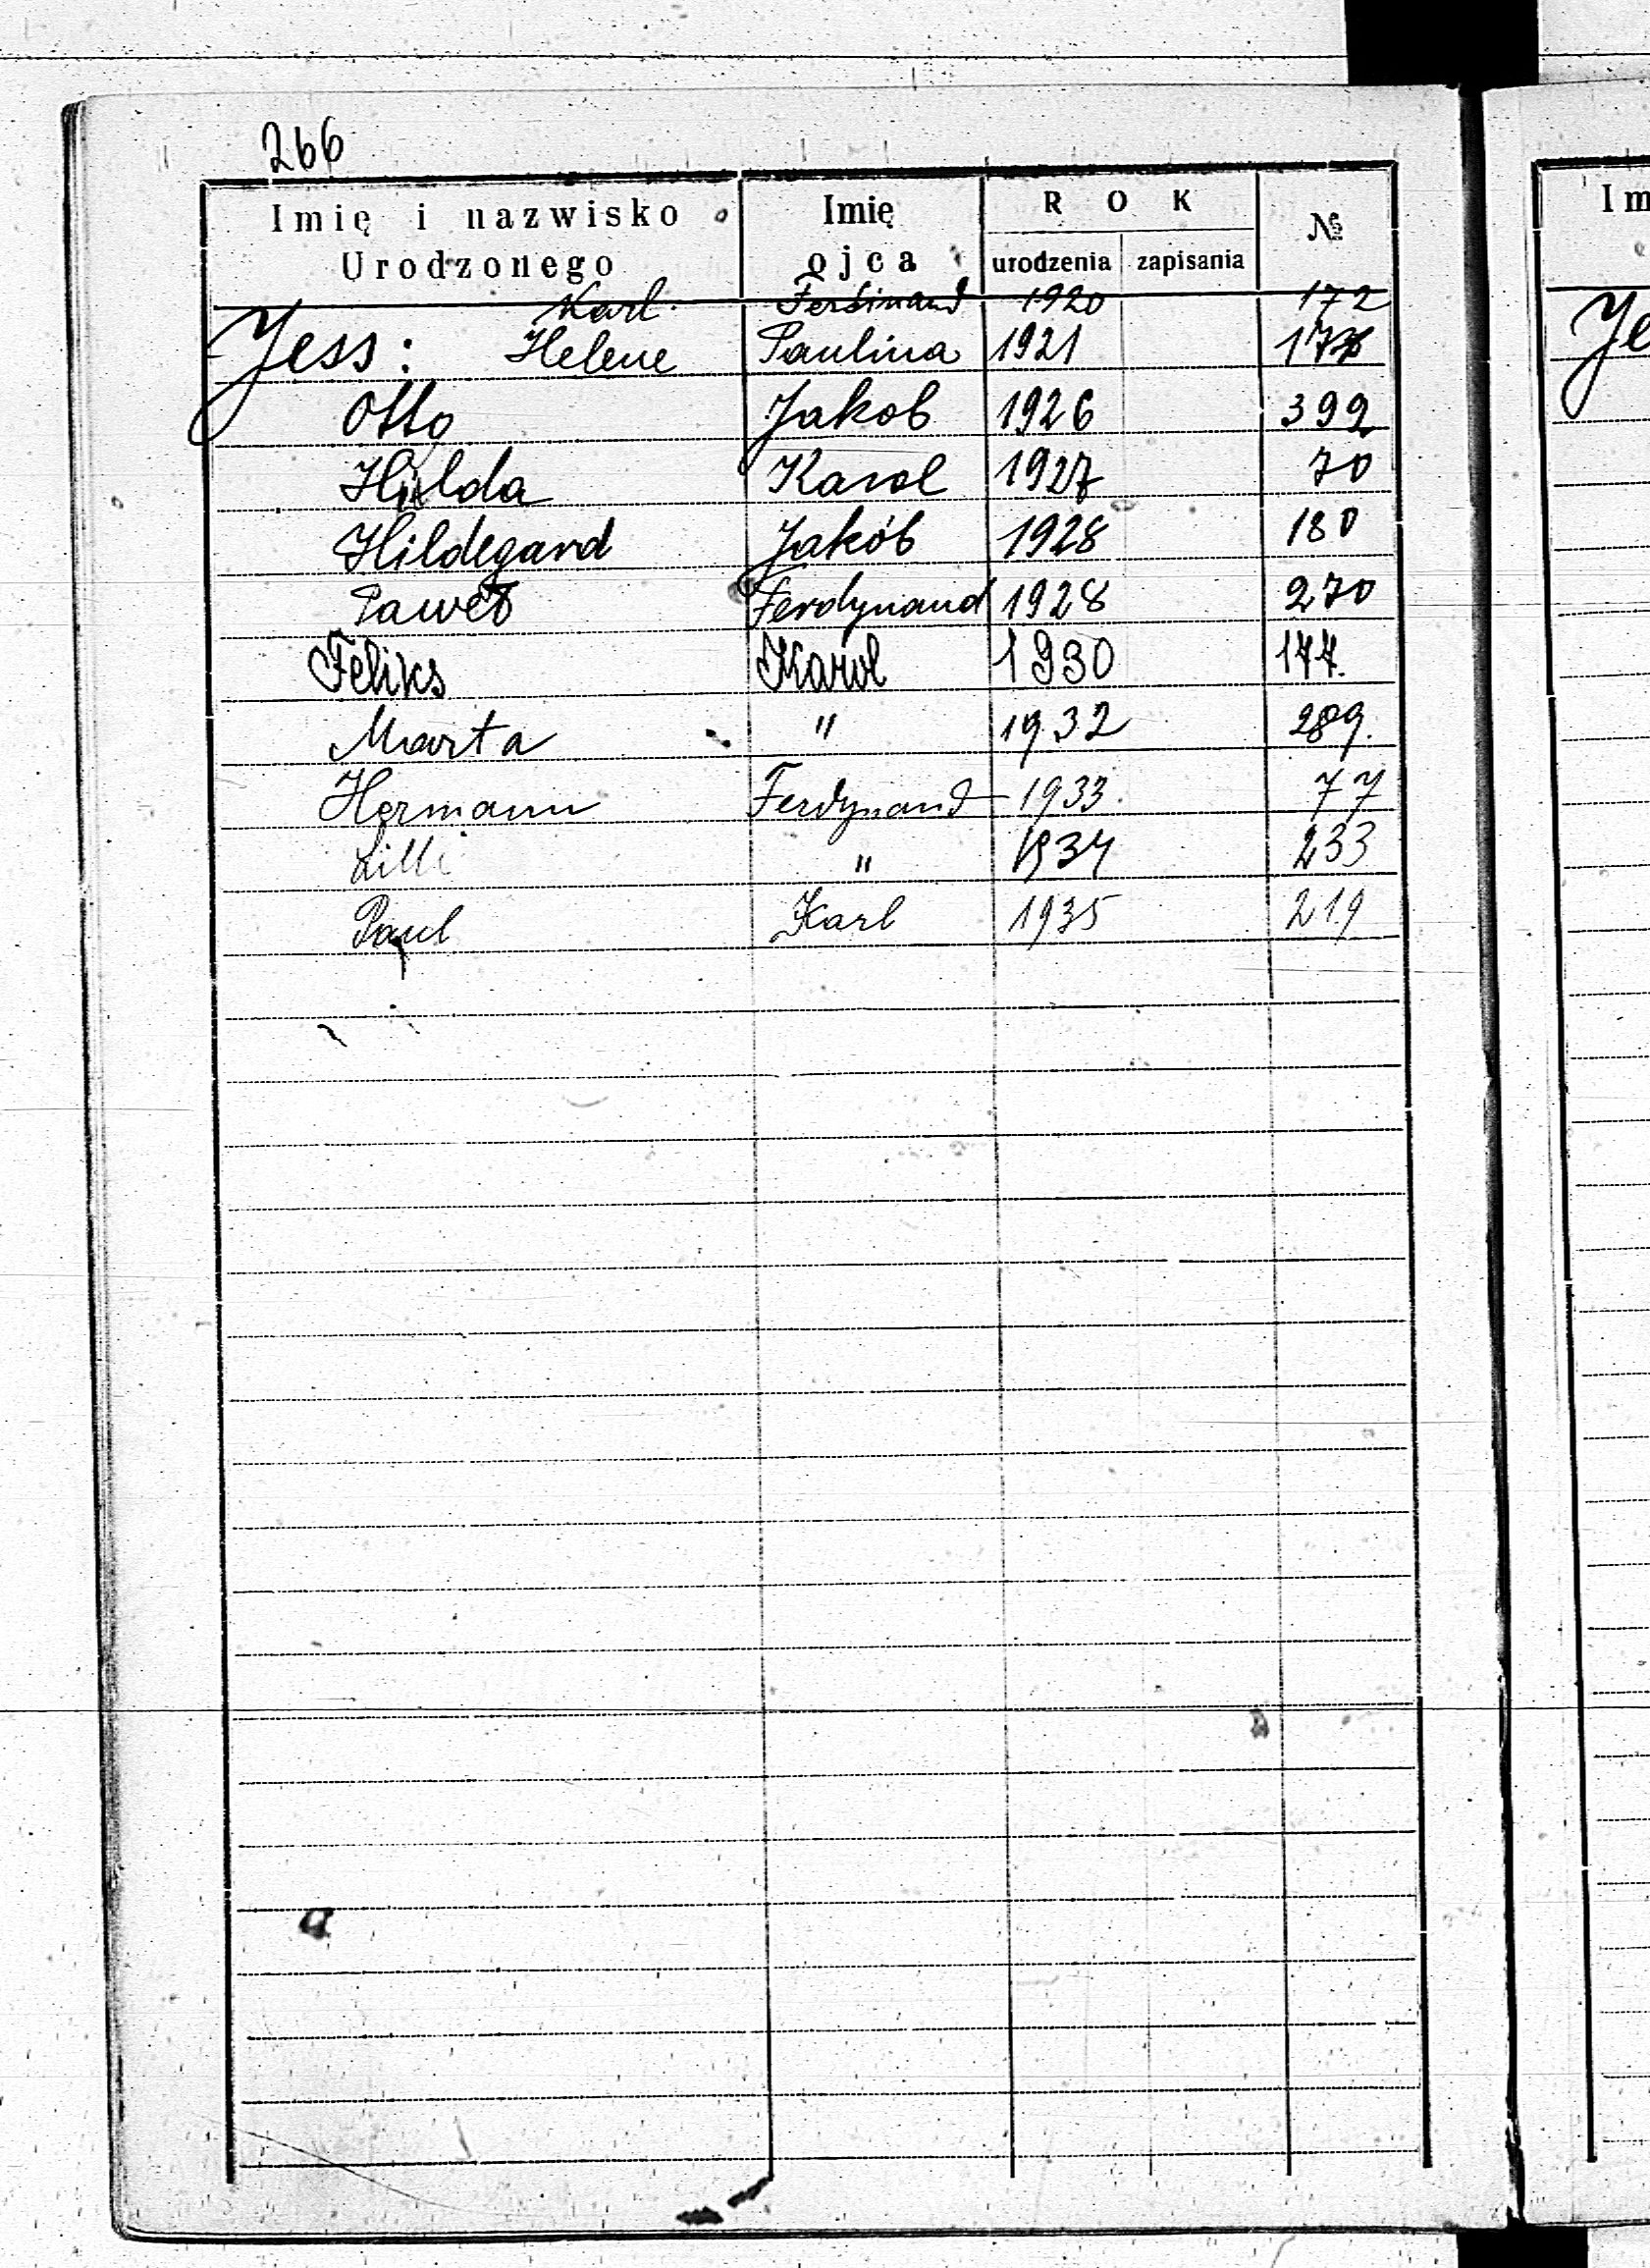 266
Imię i nazwisko Urodzonego Imię ojca ROK urodzenia zapisania №
Karl Ferdinand 1920 172
Jess: Helene Paulina 1921
Otto Jakob 1926 399
Hilda Karol 1927 70
Hildegard Jakób 1928 180
Paweł Ferdynand 1928 270
Feliks Karol 1930 177.
Marta " 1932 289.
Hermann Ferdynand 1933 77
Lilli " 1934 233
Paul Karl 1935 219
Im
Je